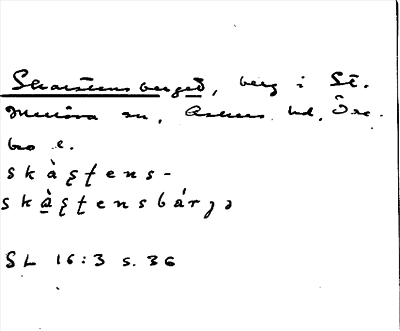 Skarstensberget, berg i St.
Mellösa sn, Askers hd, Öre-
bro l.
skàʂʈens-
skàʂʈensbárjə
SL 16:3 s. 36